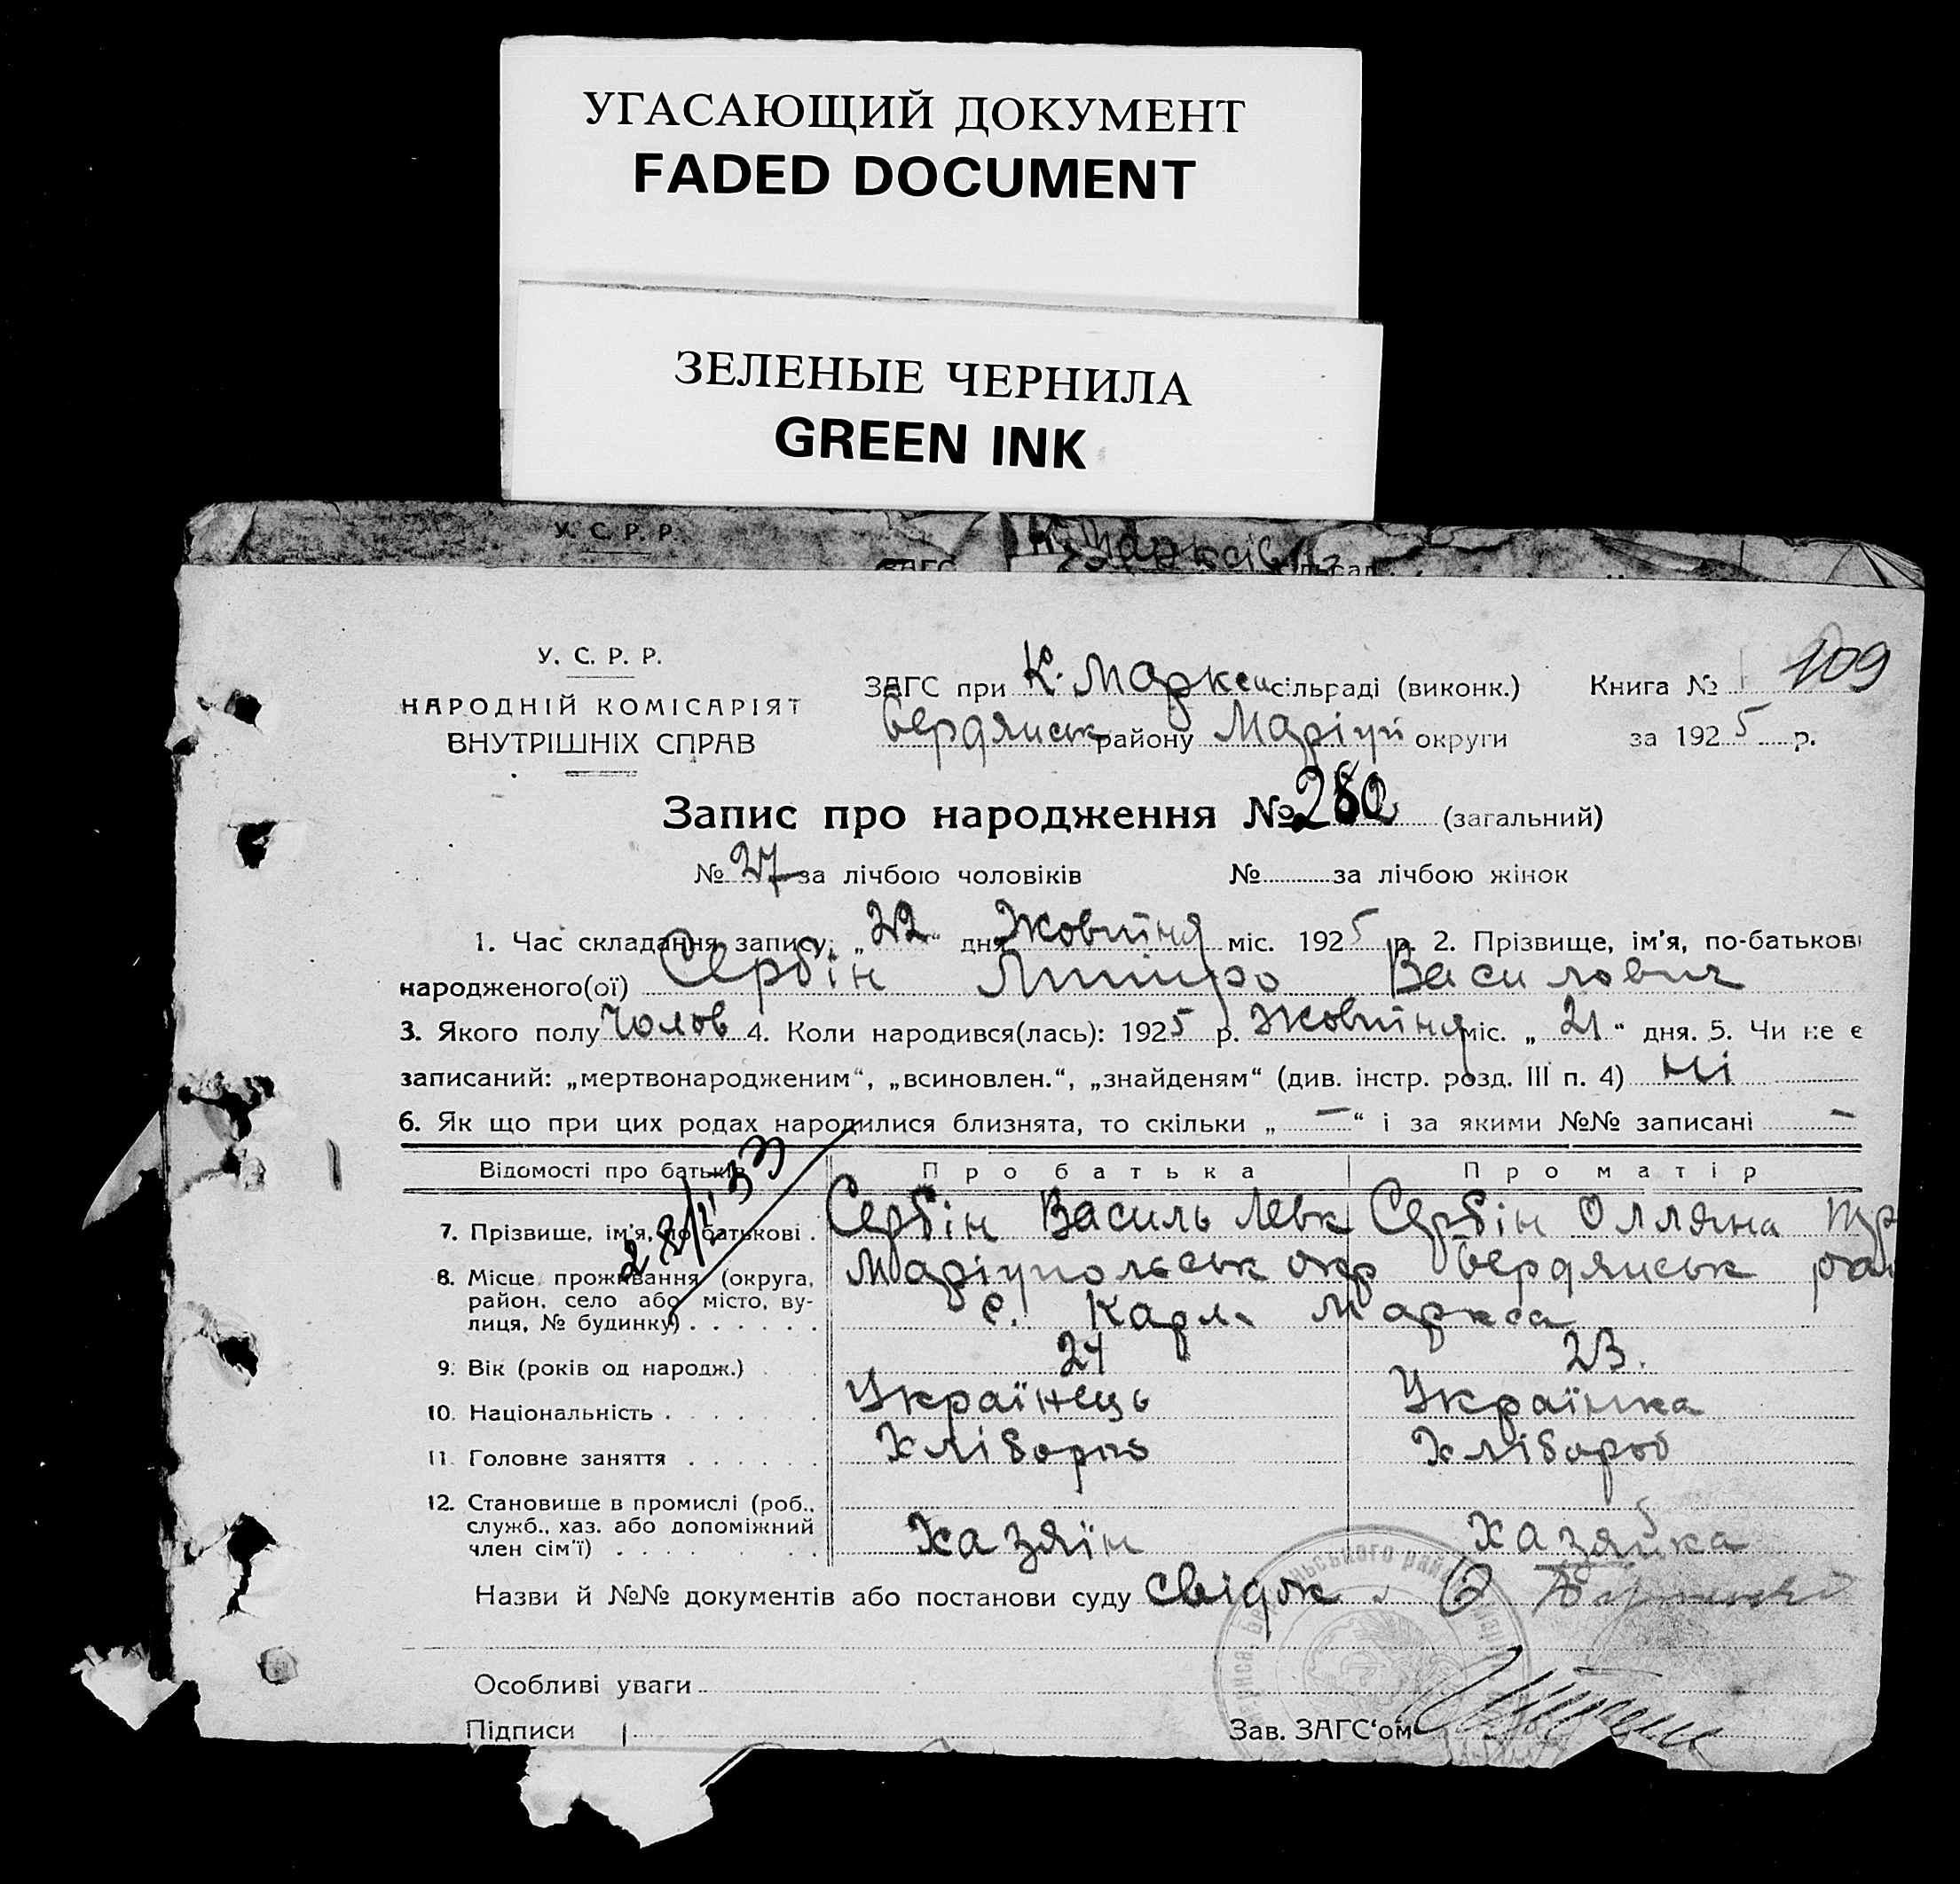 УГАСАЮЩИЙ ДОКУМЕНТ
FADED DOCUMENT
ЗЕЛЕНЫЕ ЧЕРНИЛА
GREEN INK
У. С. Р. Р.
ЗАГС
У. С. Р. Р.
НАРОДНІЙ КОМІСАРІЯТ
ВНУТРІШНІХ СПРАВ
ЗАГС при К. Маркси сільраді (виконк.) Книга № 109
Бердянськ району Маріуп округи за 1925 р.
Запис про народження № 280 (загальний)
№ 27 за лічбою чоловіків № за лічбою жінок
1. Час складання запису: „22“ дня Жовтня міс. 1925 р. 2. Прізвище, ім'я, по-батькові
народженого(ої) Сербін Дмитро Василович
3. Якого полу Чолов 4. Коли народився(лась): 1925 р. Жовтня міс. „21“ дня. 5. Чи не є
записаний: „мертвонародженим“, „всиновлен.“, „знайденям“ (див. інстр. розд. III п. 4) Ні
6. Як що при цих родах народилися близнята, то скільки „—“ і за якими №№ записані —
Відомості про батьків Про батька Про матір
7. Прізвище, ім'я, по батькові . Сербін Василь Левк Сербін Олляна
8. Місце проживання (округа, Маріупольськ окр Бердянськ рай
район, село або місто, ву- с. Карла Маркса
лиця, № будинку) . . . . . .
9. Вік (років од народж.) 24 23.
10. Національність . . . . . . Українець Українка
11. Головне заняття . . . . . . Хлібороб Хлібороб
12. Становище в промислі (роб.,
служб., хаз. або допоміжний
член сім'ї) . . . . . . Хазяїн Хазяйка
Назви й №№ документів або постанови суду свідок
Особливі уваги
Підписи Зав. ЗАГС'ом